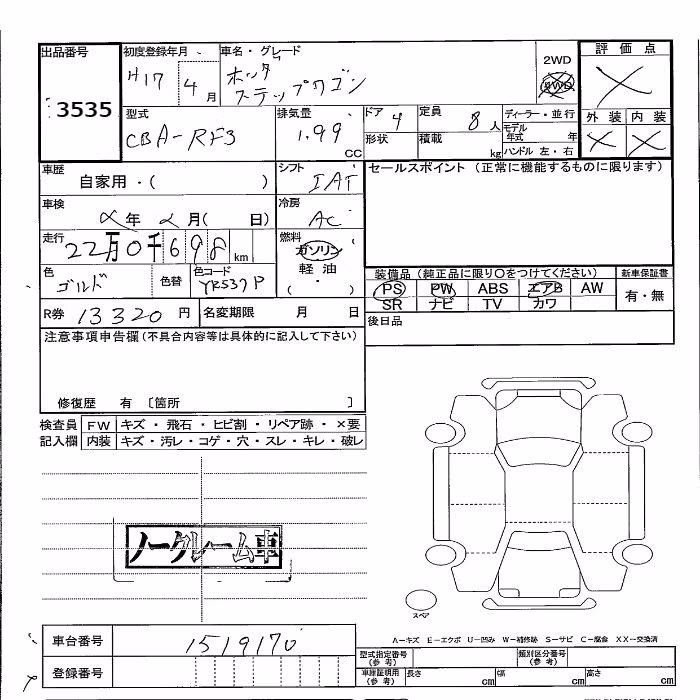 出品番号 初度登録年月 車名・グレード 評価点
3535 H17 4月 ホンダ ステップワゴン 2WD 4WD X
外装 内装
X X
型式 CBA-RF3 排気量 1.99 CC ドア 4 形状 定員 8人 積載 kg ディーラー・並行 モデル年式 年 ハンドル 左・右
車歴 自家用・( ) シフト IAT セールスポイント (正常に機能するものに限ります)
車検 年 月( 日) 冷房 AC
走行 22万0千698 km 燃料 ガソリン 軽油 ( ・ )
色 ゴールド 色替 色コード YR537P
装備品 (純正品に限り〇をつけてください) 新車保証書
PS PW ABS エアB AW 有・無
SR ナビ TV カワ
R券 13320 円 名変期限 月 日 後日品
注意事項申告欄(不具合内容等は具体的に記入して下さい)
修復歴 有 〔箇所 〕
検査員 FW キズ・飛石・ヒビ割・リペア跡・×要
記入欄 内装 キズ・汚レ・コゲ・穴・スレ・キレ・破レ
ノークレーム車
スペア
A–キズ E–エクボ U–凹み W–補修跡 S–サビ C–腐食 XX–交換済
車台番号 1519170
登録番号
型式指定番号(参考) 類別区分番号(参考)
車庫証明用(参考) 長さ cm 幅 cm 高さ cm